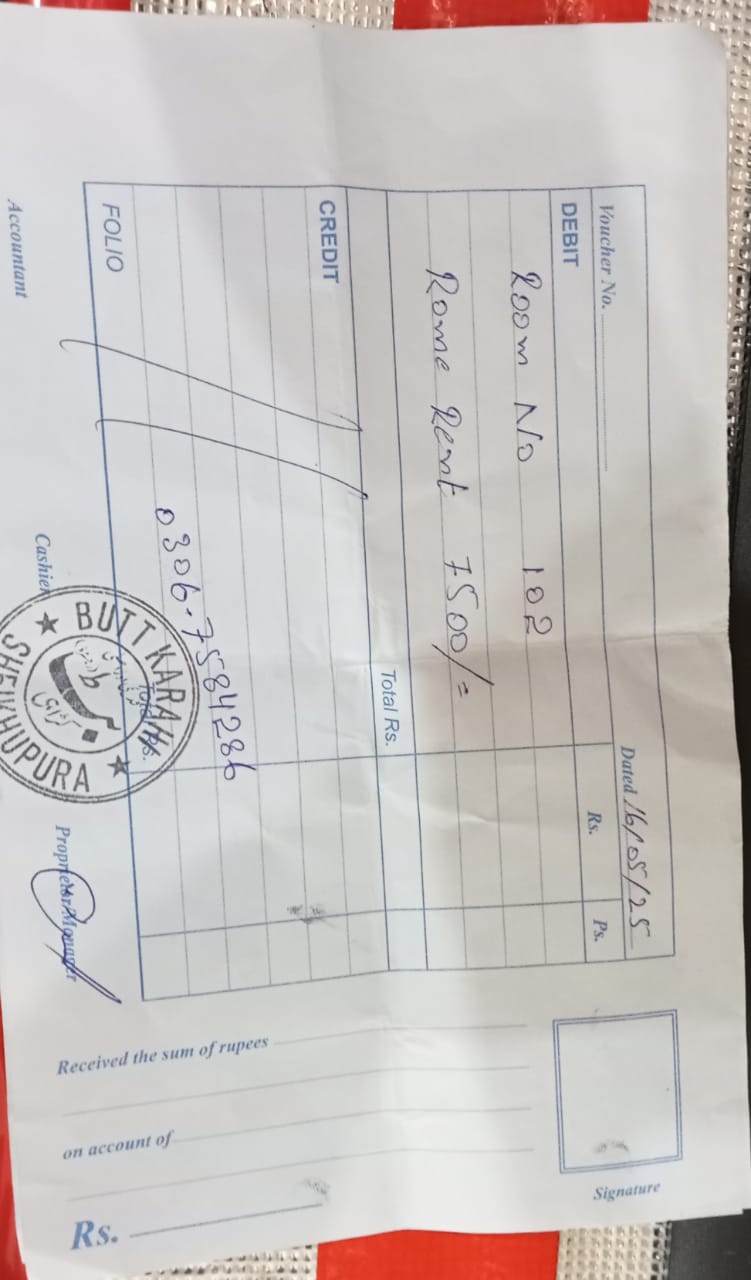 Voucher No.
Dated 16/05/25
DEBIT
Rs.
Ps.
Room No 102
Rome Rent 7500/=
Total Rs.
CREDIT
0306-7584286
FOLIO
Total Rs.
Accountant
Cashier
Proprietor/Manager
★ BUTT KARAHI ★
SHEIKHUPURA
Signature
Received the sum of rupees
on account of
Rs.